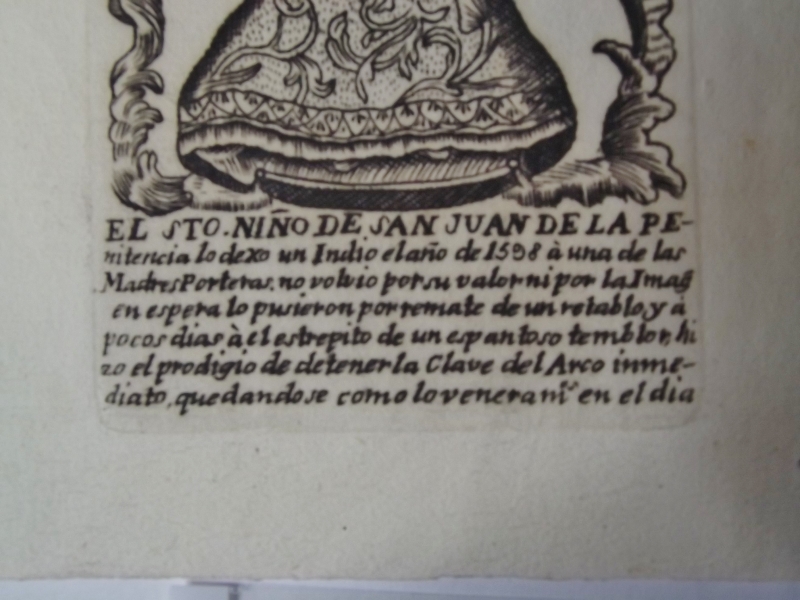 EL STO. NIÑO DE SAN JUAN DE LA PE-
nitencia lo dexo un Indio el año de 1598 à una de las
Madres Porteras, no volvio por su valor ni por la Imag
en espera lo pusieron por remate de un retablo, y à
pocos dias à el estrepito de un espantoso temblor, hi
zo el prodigio de detener la Clave del Arco inme-
diato, quedandose como lo veneram.s en el dia